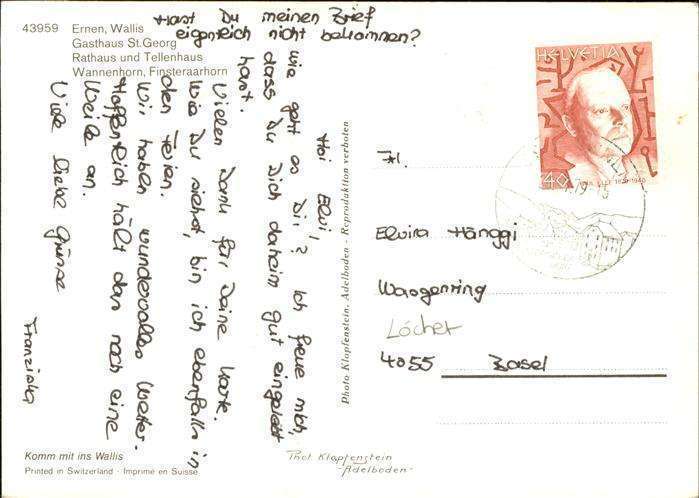 Hast Du meinen Brief
eigentlich nicht bekommen?
43959 Ernen, Wallis
Gasthaus St. Georg
Rathaus und Tellenhaus
Wannenhorn, Finsteraarhorn
Hoi Elvi,
wie geht es Dir? Ich freue mich,
dass Du Dich daheim gut eingelebt
hast.
Vielen Dank für Deine Karte.
Wie Du siehst, bin ich ebenfalls in
den Ferien.
Wir haben wundervolles Wetter.
Hoffentlich hält das noch eine
Weile an.
Viele liebe Grüsse
Franziska
Komm mit ins Wallis
Printed in Switzerland - Imprimé en Suisse
Photo Klopfenstein, Adelboden - Reproduktion verboten
Phot. Klopfenstein
Adelboden
HELVETIA
40
Fr.
Elvira Hänggi
Wasgenring
Löcher
4055 Basel